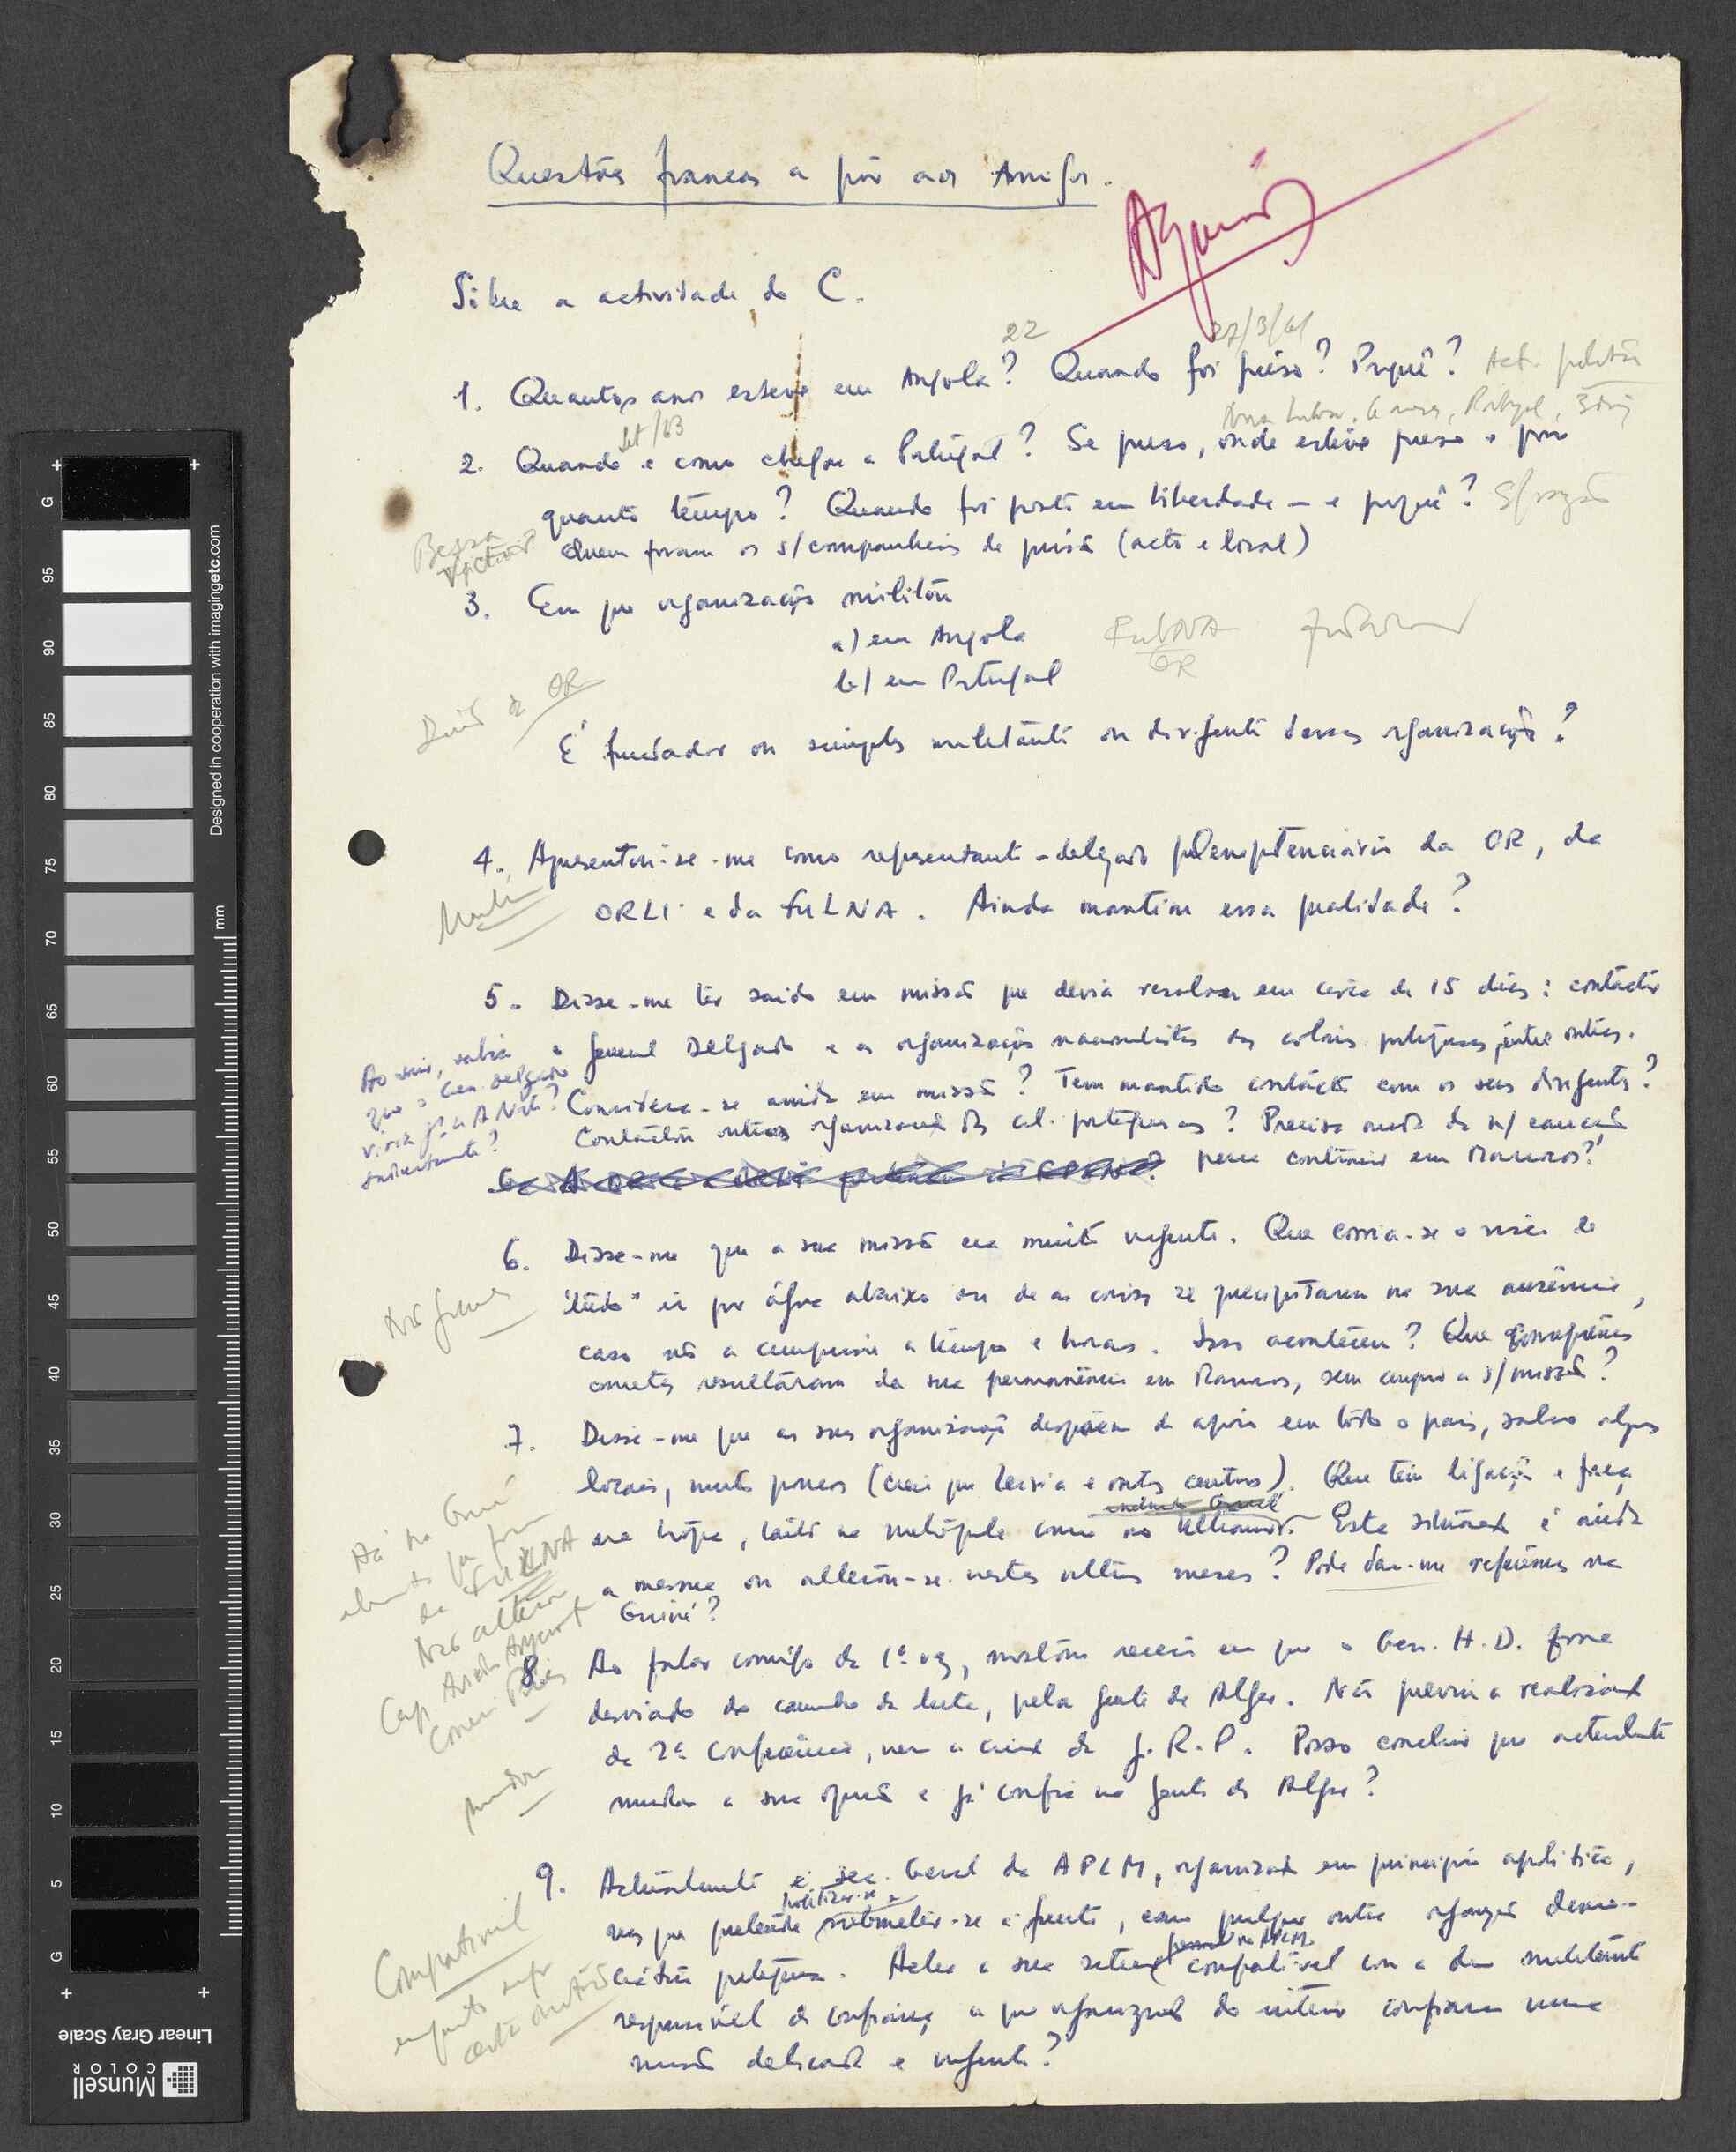 Questões francas a pôr aos Amigos.
Sobre a actividade do C.
22
27/3/61
1. Quantos anos esteve em Angola? Quando foi prêso? Porquê?
Set/63
2. Quando e como chegou a Portugal? Se preso, onde esteve preso e por
quanto tempo? Quando foi posto em liberdade - e porquê? S/razão
Quem foram os s/companheiros de prisão (acto e local)
3. Em que organizações militou
a) em Angola
FULNA
OR
b) em Portugal
OR
É fundador ou simples militante ou dirigente dessas organizações?
4. Apresentou-se-me como representante-delegado plenipotenciário da OR, da
ORLI e da FULNA. Ainda mantém essa qualidade?
5. Disse-me ter saído em missão que devia resolver em cerca de 15 dias: contactar
o general Delgado e as organizações nacionalistas das colónias portuguesas, entre outras.
Ao vir, sabia
que o Gen Delgado
viria p. a
Considera-se ainda em missão? Tem mantido contacto com os seus dirigentes?
Contactou outras organizações das col. portuguesas? Precisa ainda da n/ caução
para continuar em Marrocos?
6. Disse-me que a sua missão era muito urgente. Que corria-se o risco de
"tudo" ir por água abaixo ou de as coisas se precipitarem na sua ausência,
caso não a cumprisse a tempo e horas. Isso aconteceu? Que consequências
concretas resultaram da sua permanência em Marrocos, sem cumprir a s/missão?
7. Disse-me que as suas organizações dispõem de apoio em todo o país, salvo alguns
locais, muito poucos (creio que Leiria e outros centros). Que tem ligação e força
na tropa, tanto na metrópole como no Ultramar. Esta situação é ainda
a mesma ou alterou-se nestes últimos meses? Pode dar-me referências na
Guiné?
Há na Guiné
da FULNA
Não alterou
Cap.
8 Ao falar comigo da 1ª vez, mostrou receio em que o Gen. H.D. fosse
desviado do caminho da luta, pela gente de Alger. Não previu a realização
da 2ª Conferência, nem a criação da J.R.P. Posso concluir que actualmente
mudou a sua opinião e já confia na gente de Alger?
mudou
9. Actualmente é sec. Geral da APLM, organização em princípio apolítica,
mas que pretende submeter-se à frente, como qualquer outra organização demo-
pessoal na APLM
crática portuguesa. Acha a sua situação compatível com a dum militante
Compatível
responsável de confiança a que organizações do interior confiaram uma
missão delicada e urgente?
Munsell
COLOR
Linear Gray Scale
Designed in cooperation with imagingetc.com
mm
G
95
90
85
80
75
70
65
60
55
50
45
40
35
30
25
20
15
10
5
G